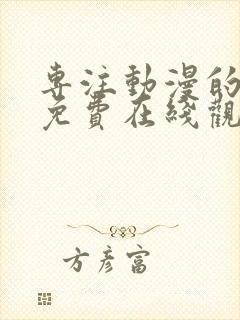 專注動漫的
免費在綫觀
方彥富